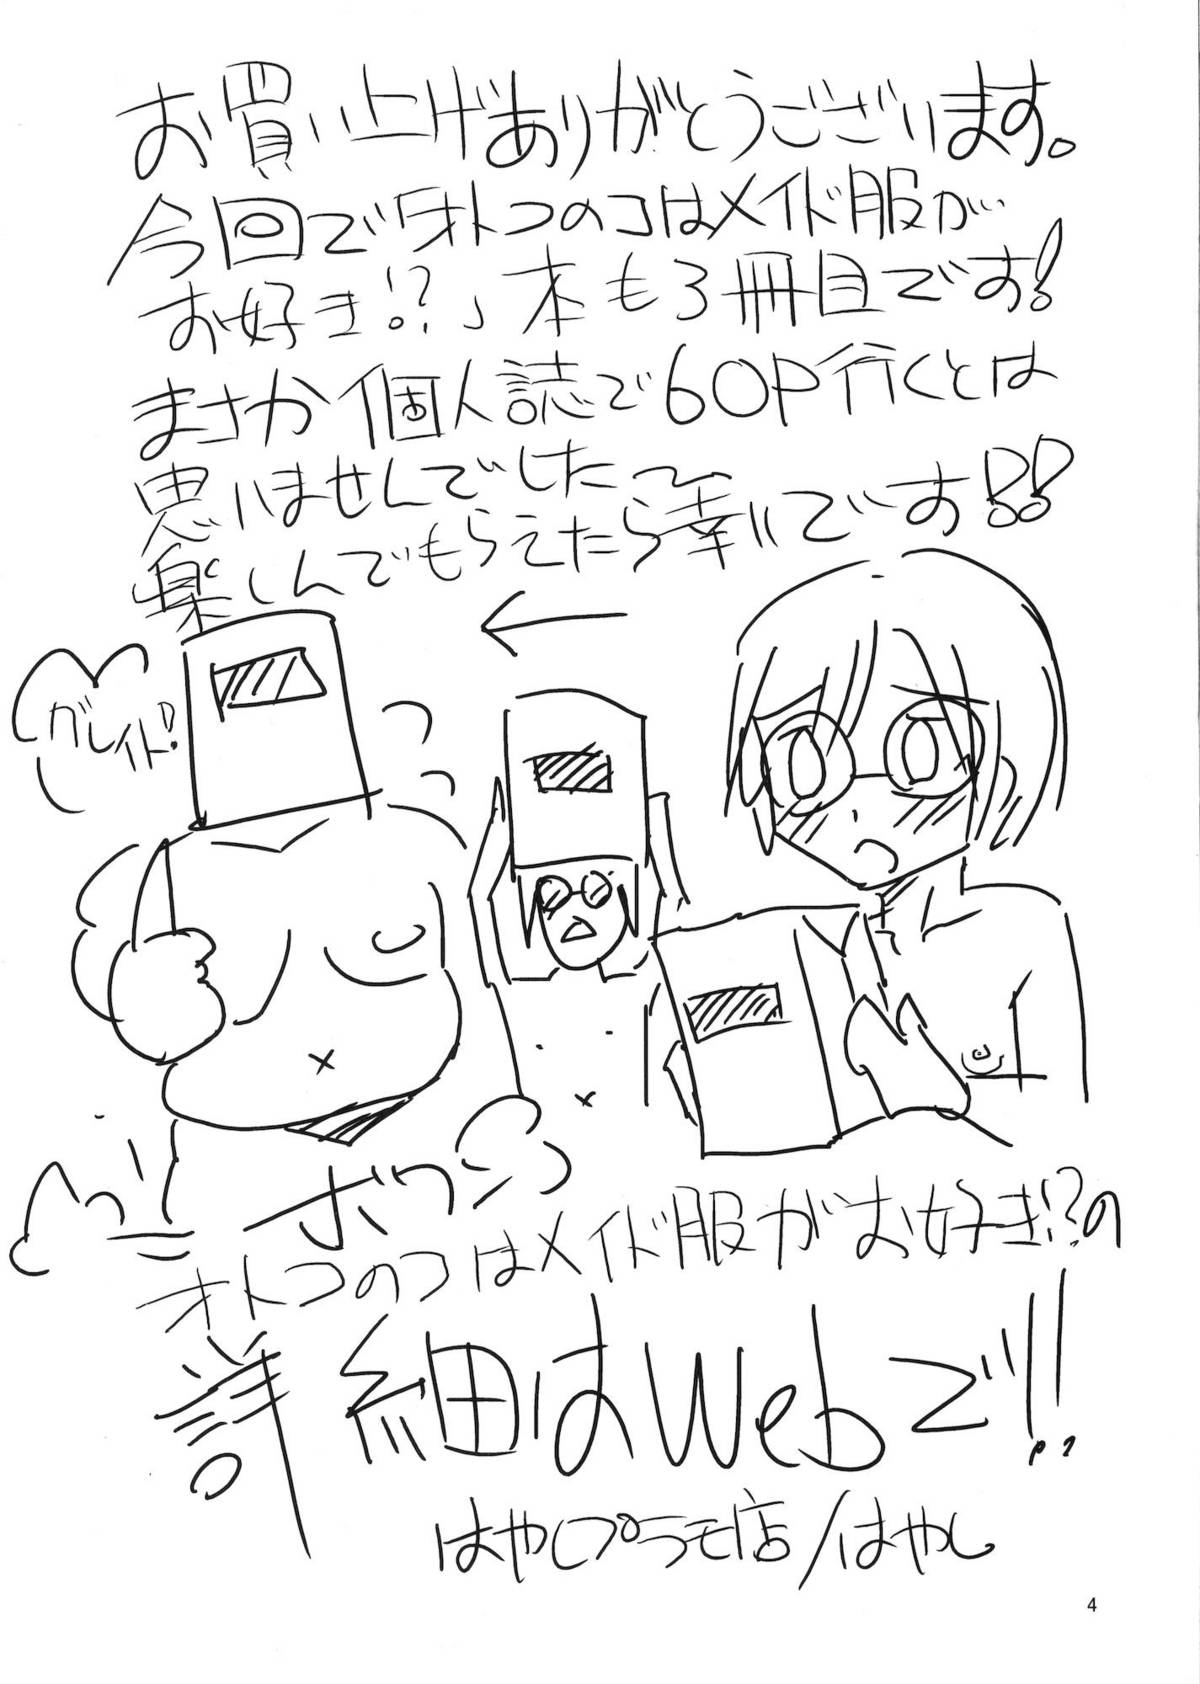 お買い上げありがとうございます。
今回で「オトコのコはメイド服が
お好き!?」本も3冊目です!
まさか個人誌で60P行くとは
思いませんでした〜
楽しんでもらえたら幸いです!!
ガレイト!
ボワン
オトコのコはメイド服がお好き!?の
詳細はWebで!!
はやしプラモ店/はやし
4